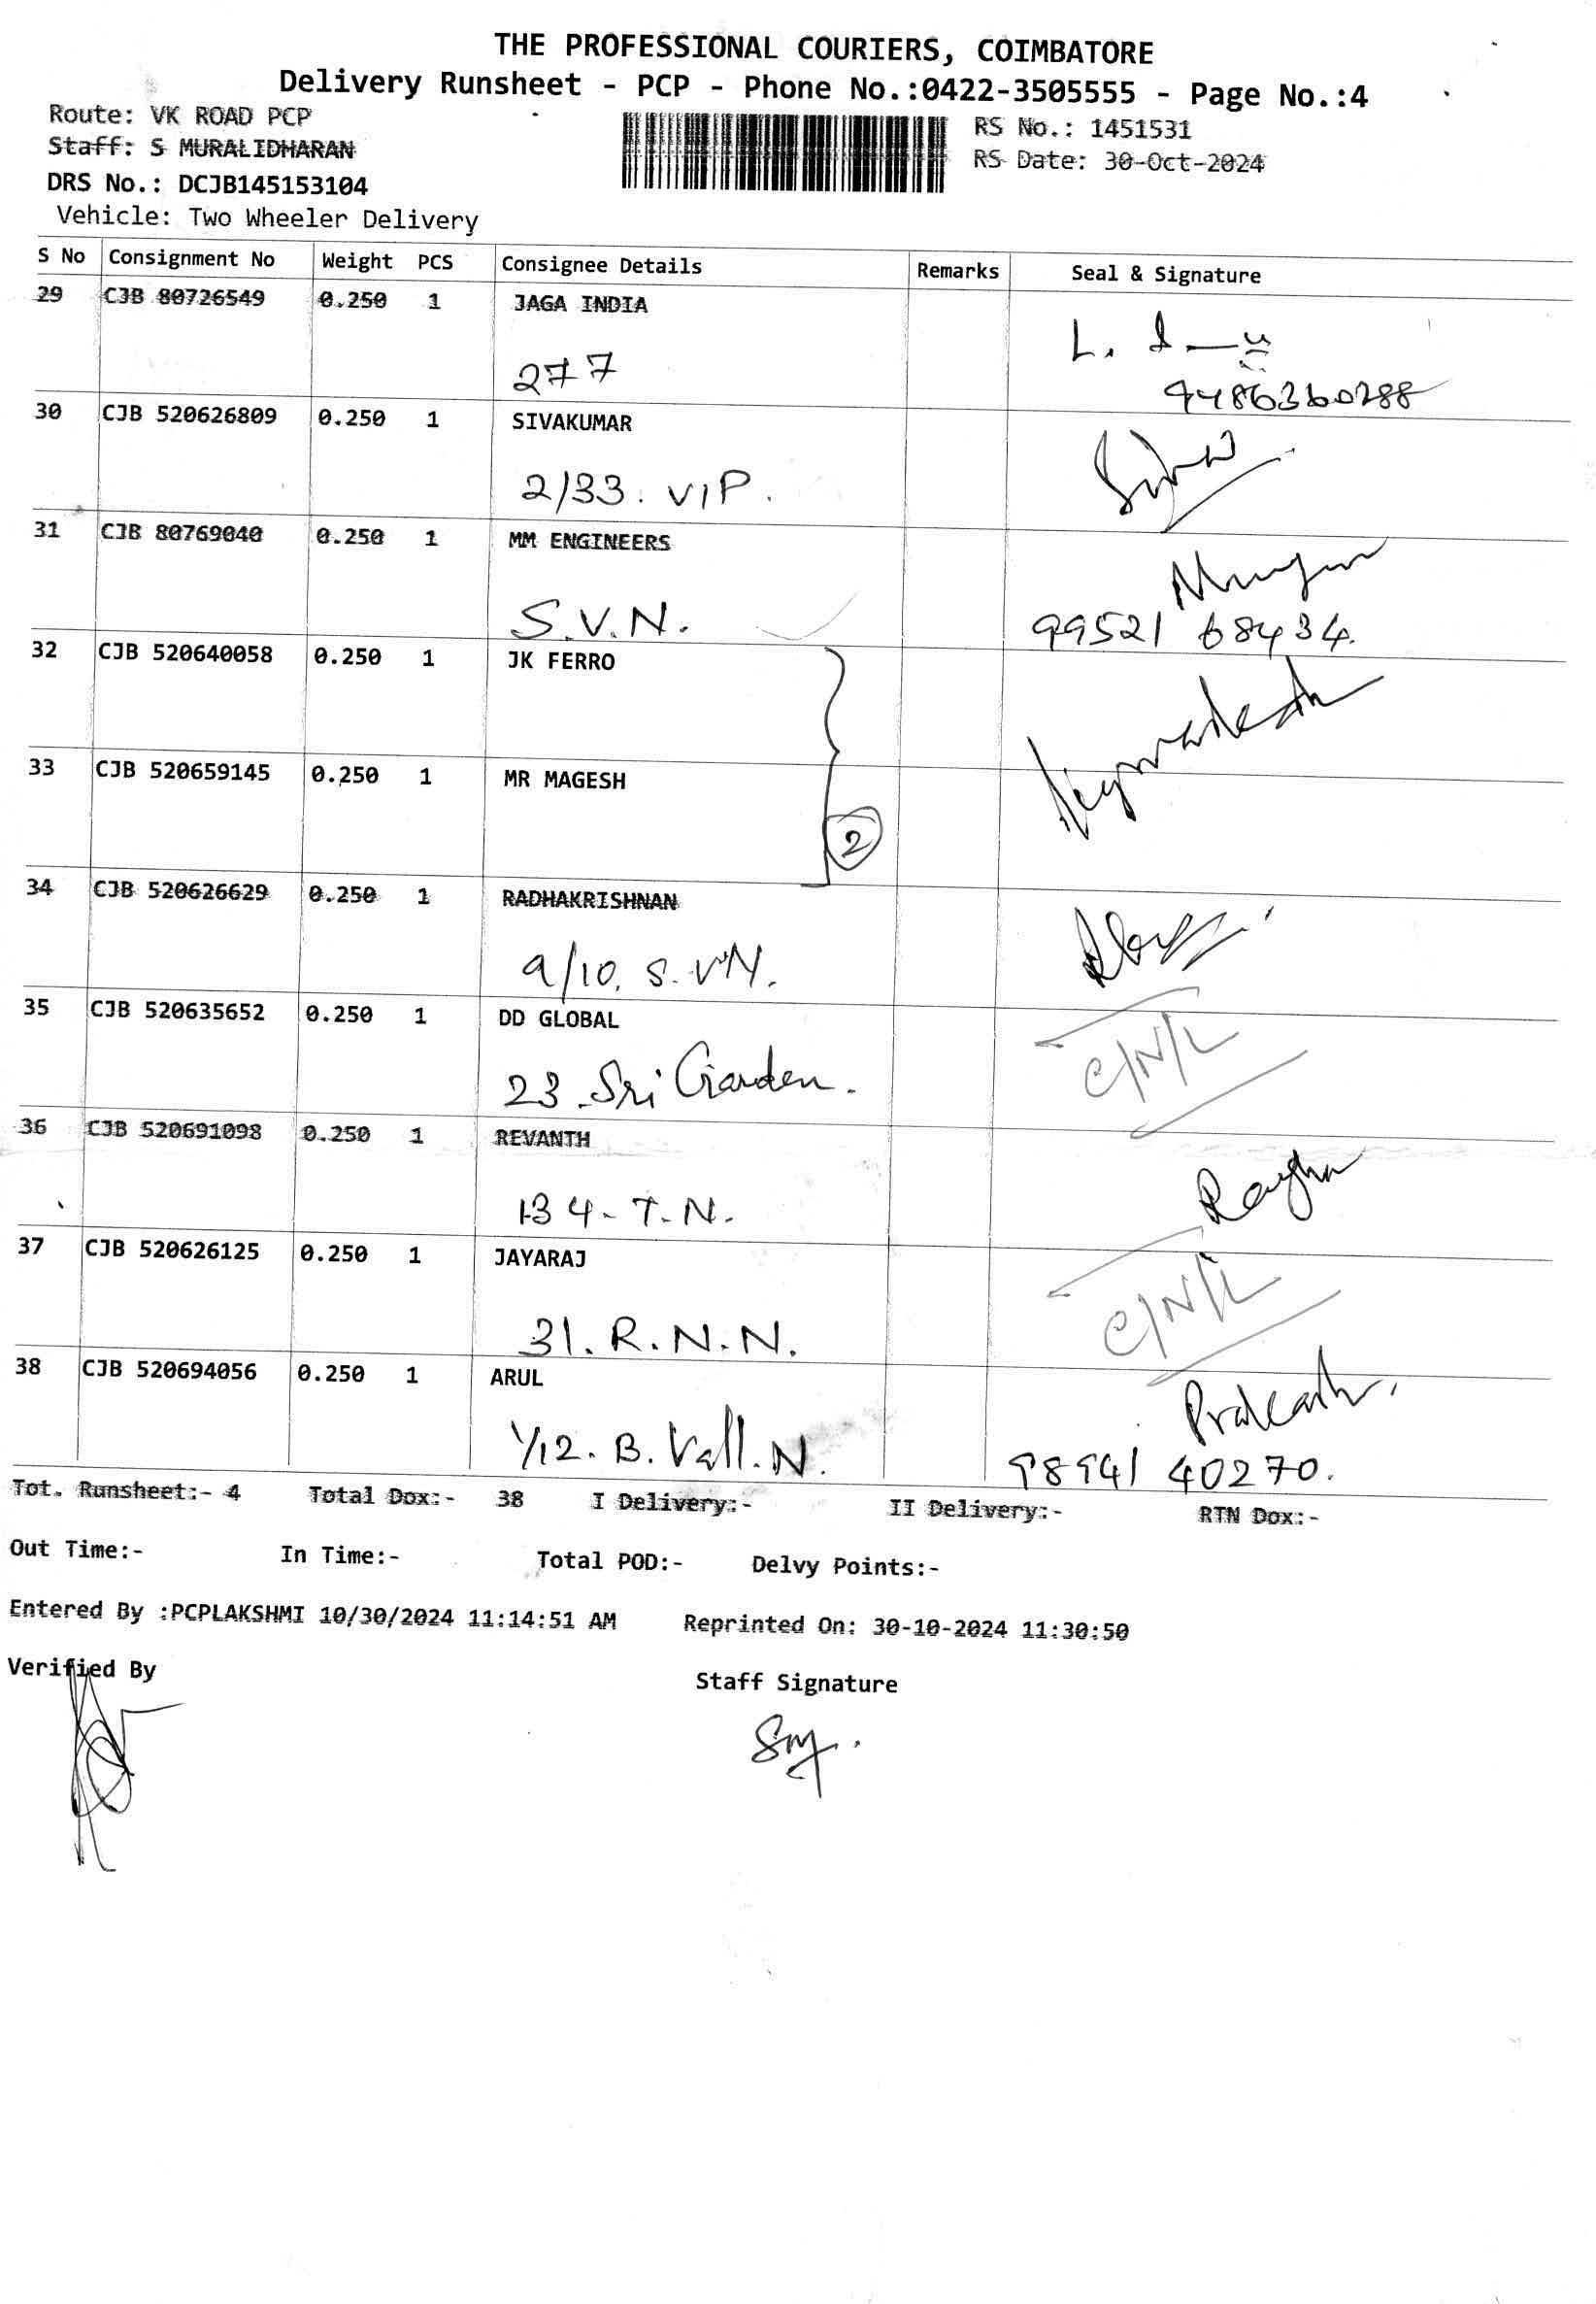 THE PROFESSIONAL COURIERS, COIMBATORE
Delivery Runsheet - PCP - Phone No.:0422-3505555 - Page No.:4
Route: VK ROAD PCP
Staff: S MURALIDHARAN
DRS No.: DCJB145153104
Vehicle: Two Wheeler Delivery
RS No.: 1451531
RS Date: 30-Oct-2024
S No Consignment No Weight PCS Consignee Details Remarks Seal & Signature
29 CJB 80726549 0.250 1 JAGA INDIA
277
9486360288
30 CJB 520626809 0.250 1 SIVAKUMAR
2/33. VIP.
31 CJB 80769040 0.250 1 MM ENGINEERS
S.V.N. 99521 68434.
32 CJB 520640058 0.250 1 JK FERRO
33 CJB 520659145 0.250 1 MR MAGESH
2
34 CJB 520626629 0.250 1 RADHAKRISHNAN
9/10, S.V.N.
35 CJB 520635652 0.250 1 DD GLOBAL
23 Sri Garden. C/N/L
36 CJB 520691098 0.250 1 REVANTH
134-T.N. Raghu
37 CJB 520626125 0.250 1 JAYARAJ
31. R.N.N. C/N/L
38 CJB 520694056 0.250 1 ARUL
1/12. B. Vall. N. Prakash.
98941 40270.
Tot. Runsheet:- 4 Total Dox:- 38 I Delivery:- II Delivery:- RTN Dox:-
Out Time:- In Time:- Total POD:- Delvy Points:-
Entered By :PCPLAKSHMI 10/30/2024 11:14:51 AM Reprinted On: 30-10-2024 11:30:50
Verified By Staff Signature